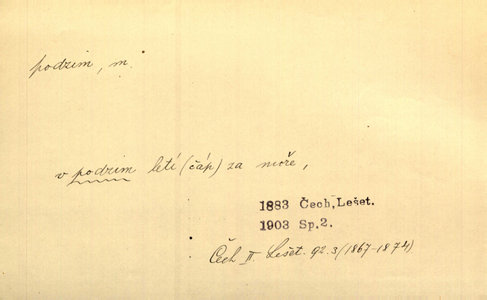 podzim, m.
v podzim letí (čáp) za moře,
1883 Čech, Lešet.
1903 Sp.2.
Čech II. Lešet. 92.3 (1867-1874)